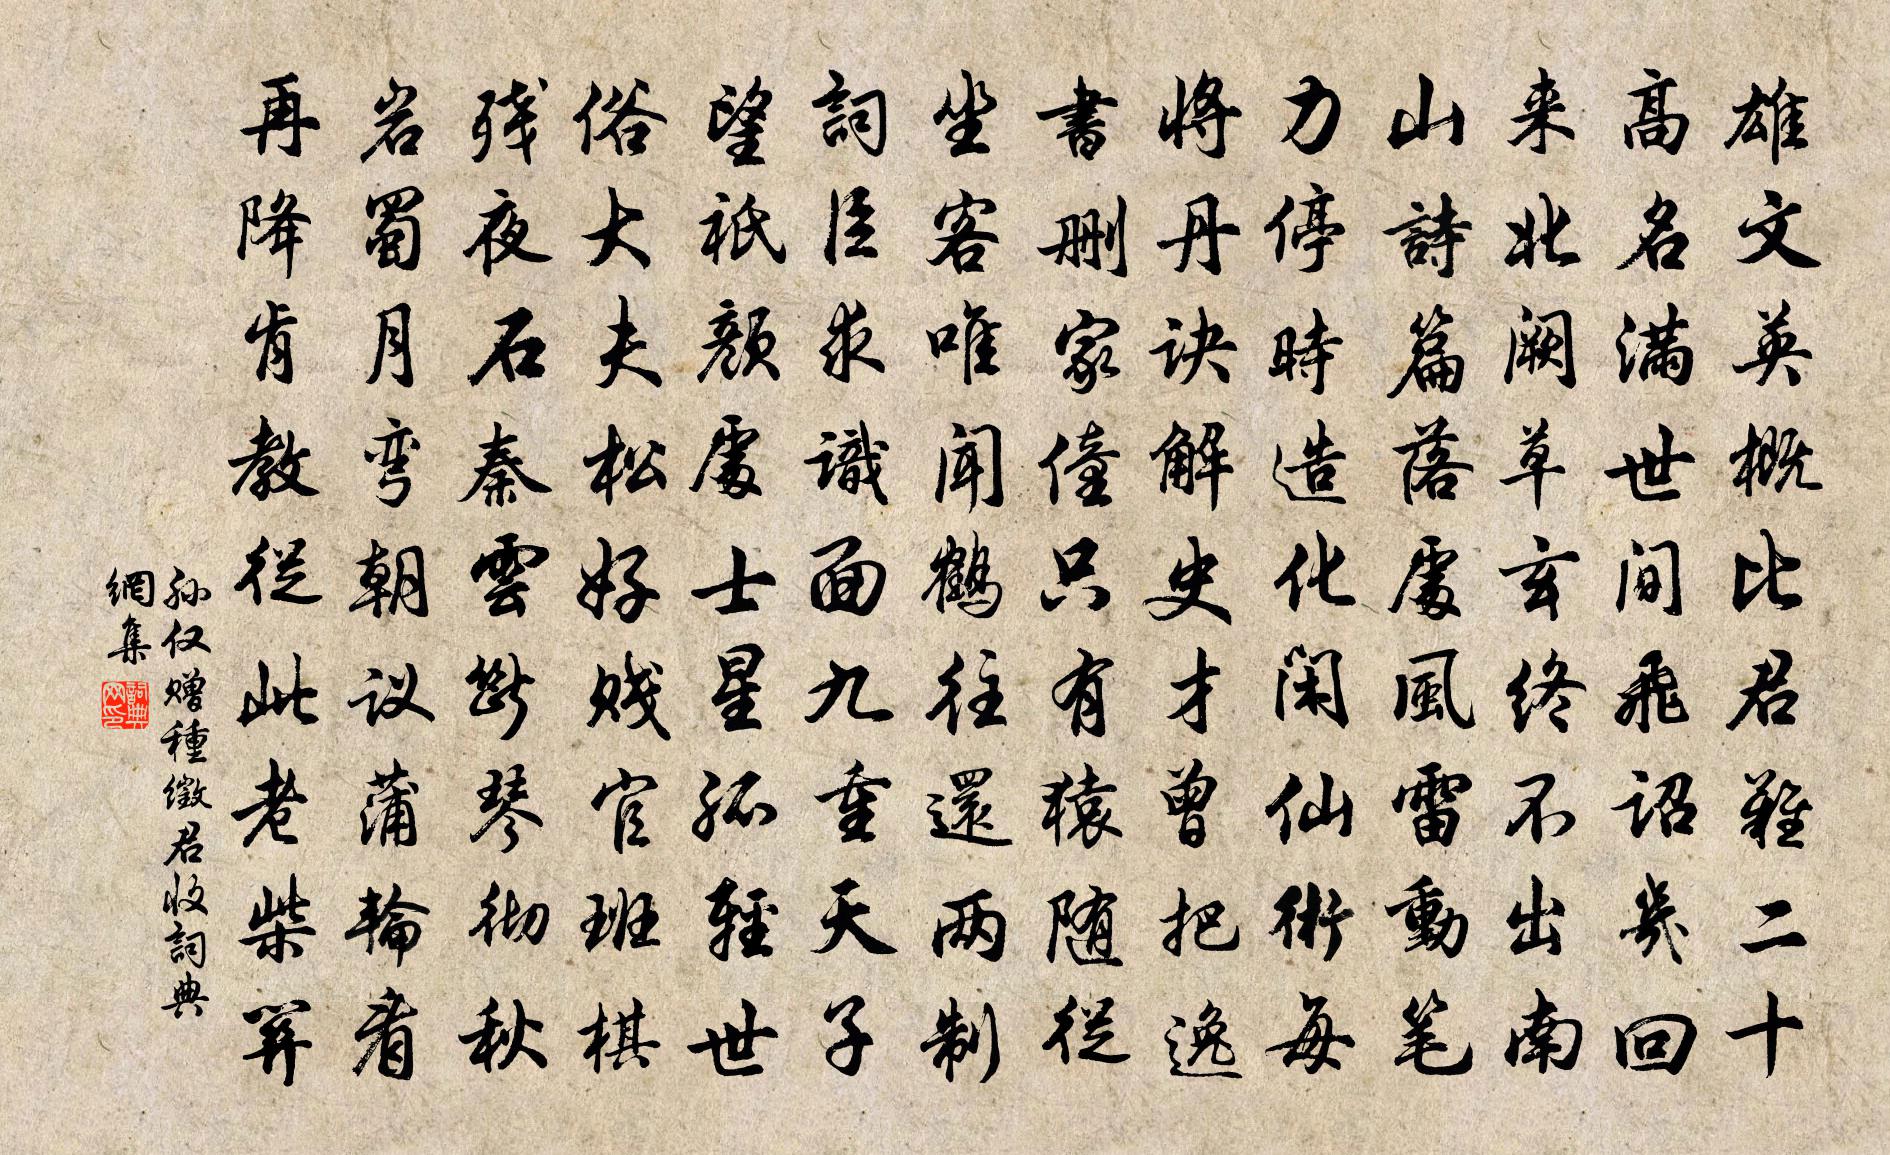 雄文英概比君難二十
高名满世间飛詔幾回
来北阙草玄终不出南
山詩篇落處風雷動笔
力停時造化闲仙術每
将丹诀解史才曾把逸
書删家僮只有猿随従
坐客唯闻鹤往還两制
詞臣求識面九重天子
望祇颜處士星孤輕世
俗大夫松好贱官班棋
残夜石秦雲断琴彻秋
岩蜀月弯朝议蒲輪看
再降肯教従此老柴関
孙仅赠種徵君收詞典
網集
詞典网印